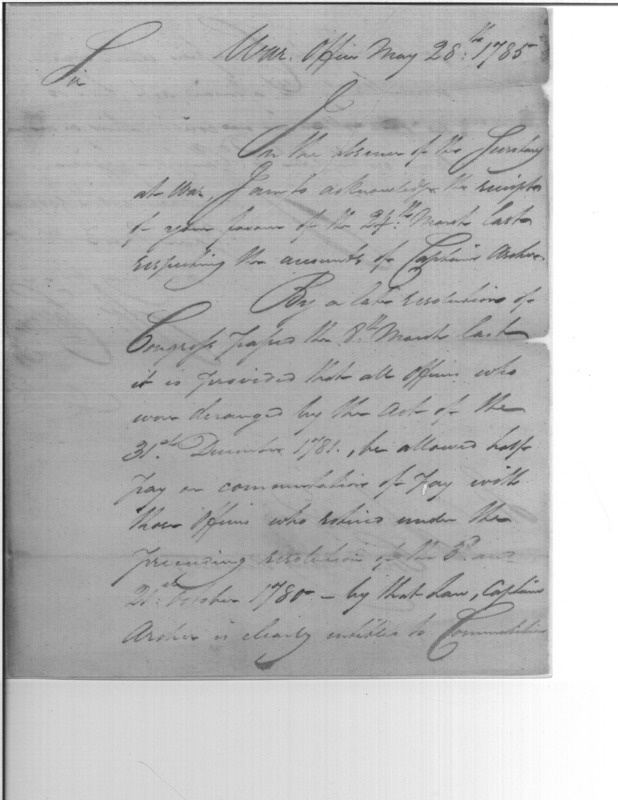 War Office May 28.th 1785
Sir
In the absence of the Secretary
at War, I am to acknowledge the receipt
of your favour of the 24.th March last
respecting the accounts of Captain Archer.
By a late resolution of
Congress passed the 8.th March last
it is provided that all Officers who
were deranged by the Act of the
31.st December 1781, be allowed half
pay or commutation of pay with
those Officers who retired under the
preceeding resolution of the 3.d and
21.st October 1780 – by that Law, Captain
Archer is clearly entitled to Commutation